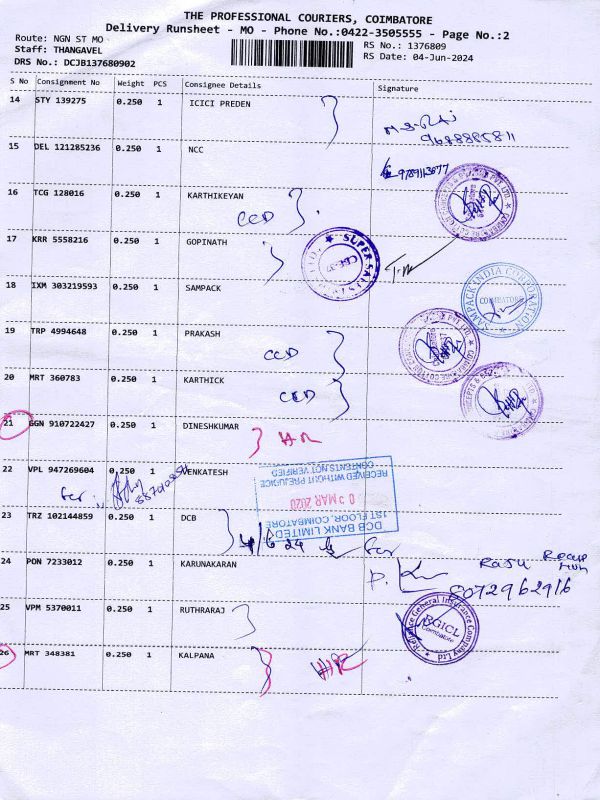 THE PROFESSIONAL COURIERS, COIMBATORE
Delivery Runsheet - MO - Phone No.:0422-3505555 - Page No.:2
Route: NGN ST MO
RS No.: 1376809
Staff: THANGAVEL
RS Date: 04-Jun-2024
DRS No.: DCJB137680902
S No Consignment No Weight PCS Consignee Details Signature
14 STY 139275 0.250 1 ICICI PREDEN
15 DEL 121285236 0.250 1 NCC
16 TCG 128016 0.250 1 KARTHIKEYAN
CCD
17 KRR 5558216 0.250 1 GOPINATH
18 IXM 303219593 0.250 1 SAMPACK
SAMPACK INDIA CORPORATION
COIMBATORE
19 TRP 4994648 0.250 1 PRAKASH
CCD
20 MRT 360783 0.250 1 KARTHICK
CCD
21 GGN 910722427 0.250 1 DINESHKUMAR
22 VPL 947269604 0.250 1 VENKATESH
for
DCB BANK LIMITED
1ST FLOOR, COIMBATORE
MAR 2020
RECEIVED WITHOUT PREJUDICE
CONTENTS NOT VERIFIED
23 TRZ 102144859 0.250 1 DCB
4/6/24 for
24 PON 7233012 0.250 1 KARUNAKARAN
RAJU
8072962916
25 VPM 5370011 0.250 1 RUTHRARAJ
Reliance General Insurance Company Ltd
RGICL
Coimbatore
26 MRT 348381 0.250 1 KALPANA